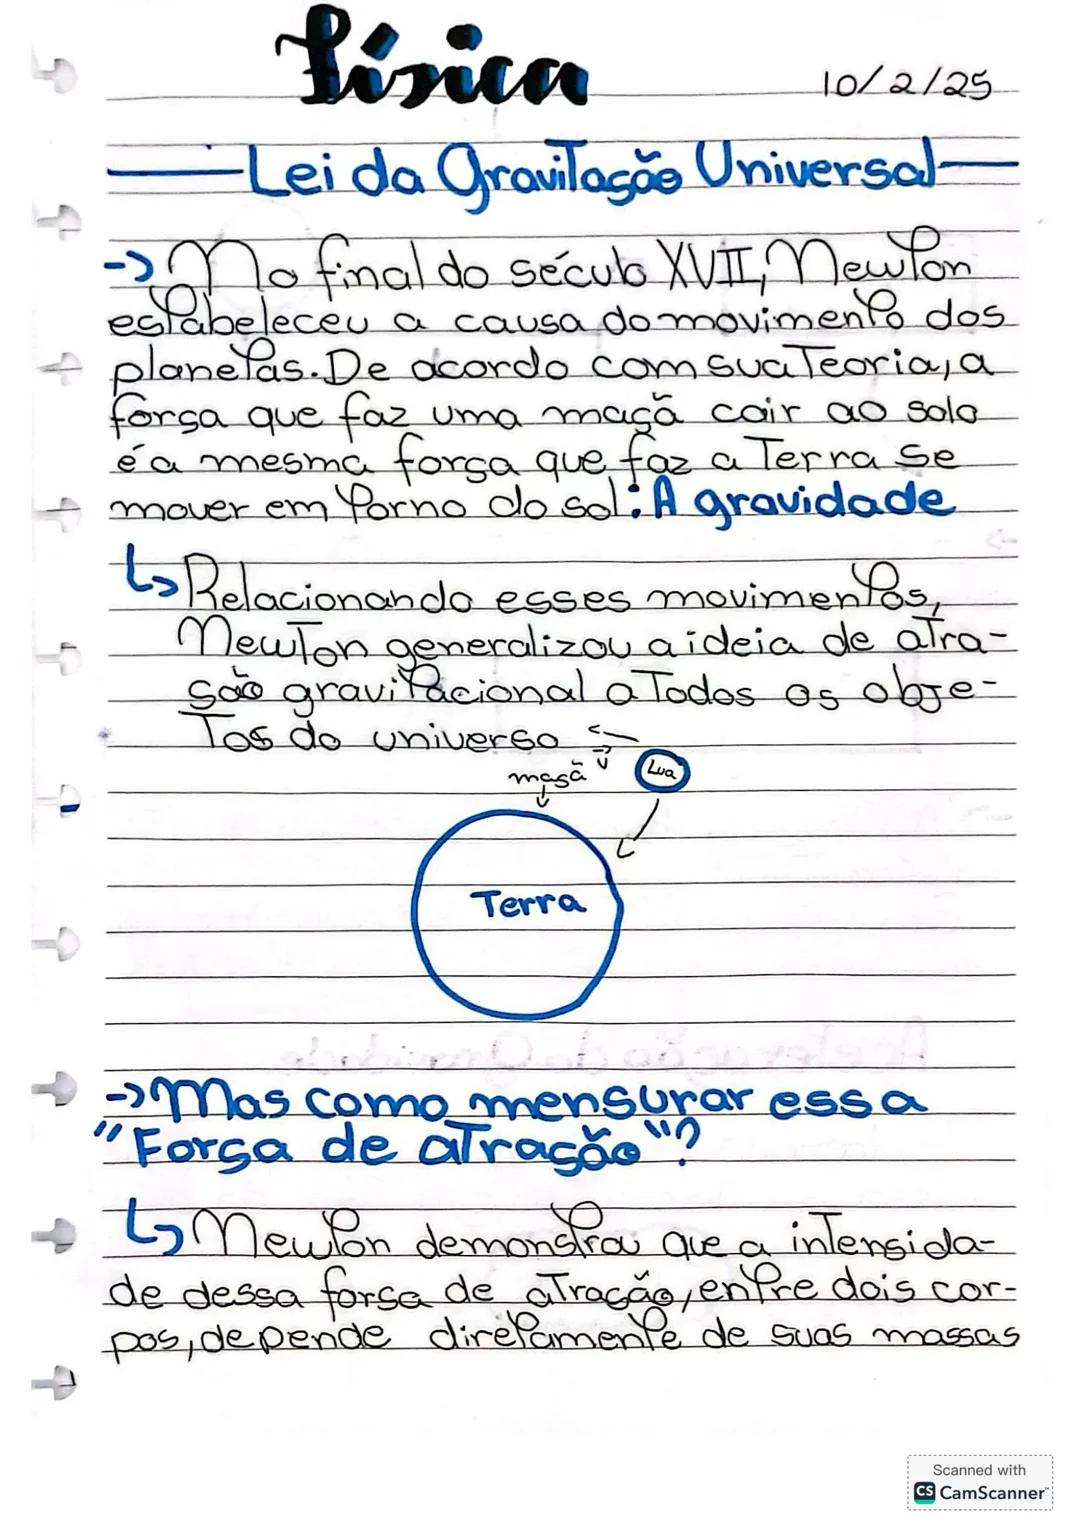 Física
10/2/25
Lei da Gravitação Universal
-> No final do século XVII, Newton
estabeleceu a causa do movimento dos
planetas. De acordo com sua Teoria, a
força que faz uma maçã cair ao solo
é a mesma força que faz a Terra se
mover em torno do sol: A gravidade
↳ Relacionando esses movimentos,
Newton generalizou a ideia de atra-
ção gravitacional a Todos os obje-
Tos do universo
maçã
Lua
Terra
-> Mas como mensurar essa
"Força de atração"?
↳ Newton demonstrou que a intensida-
de dessa força de atração, entre dois cor-
pos, depende diretamente de suas massas
Scanned with
CS CamScanner